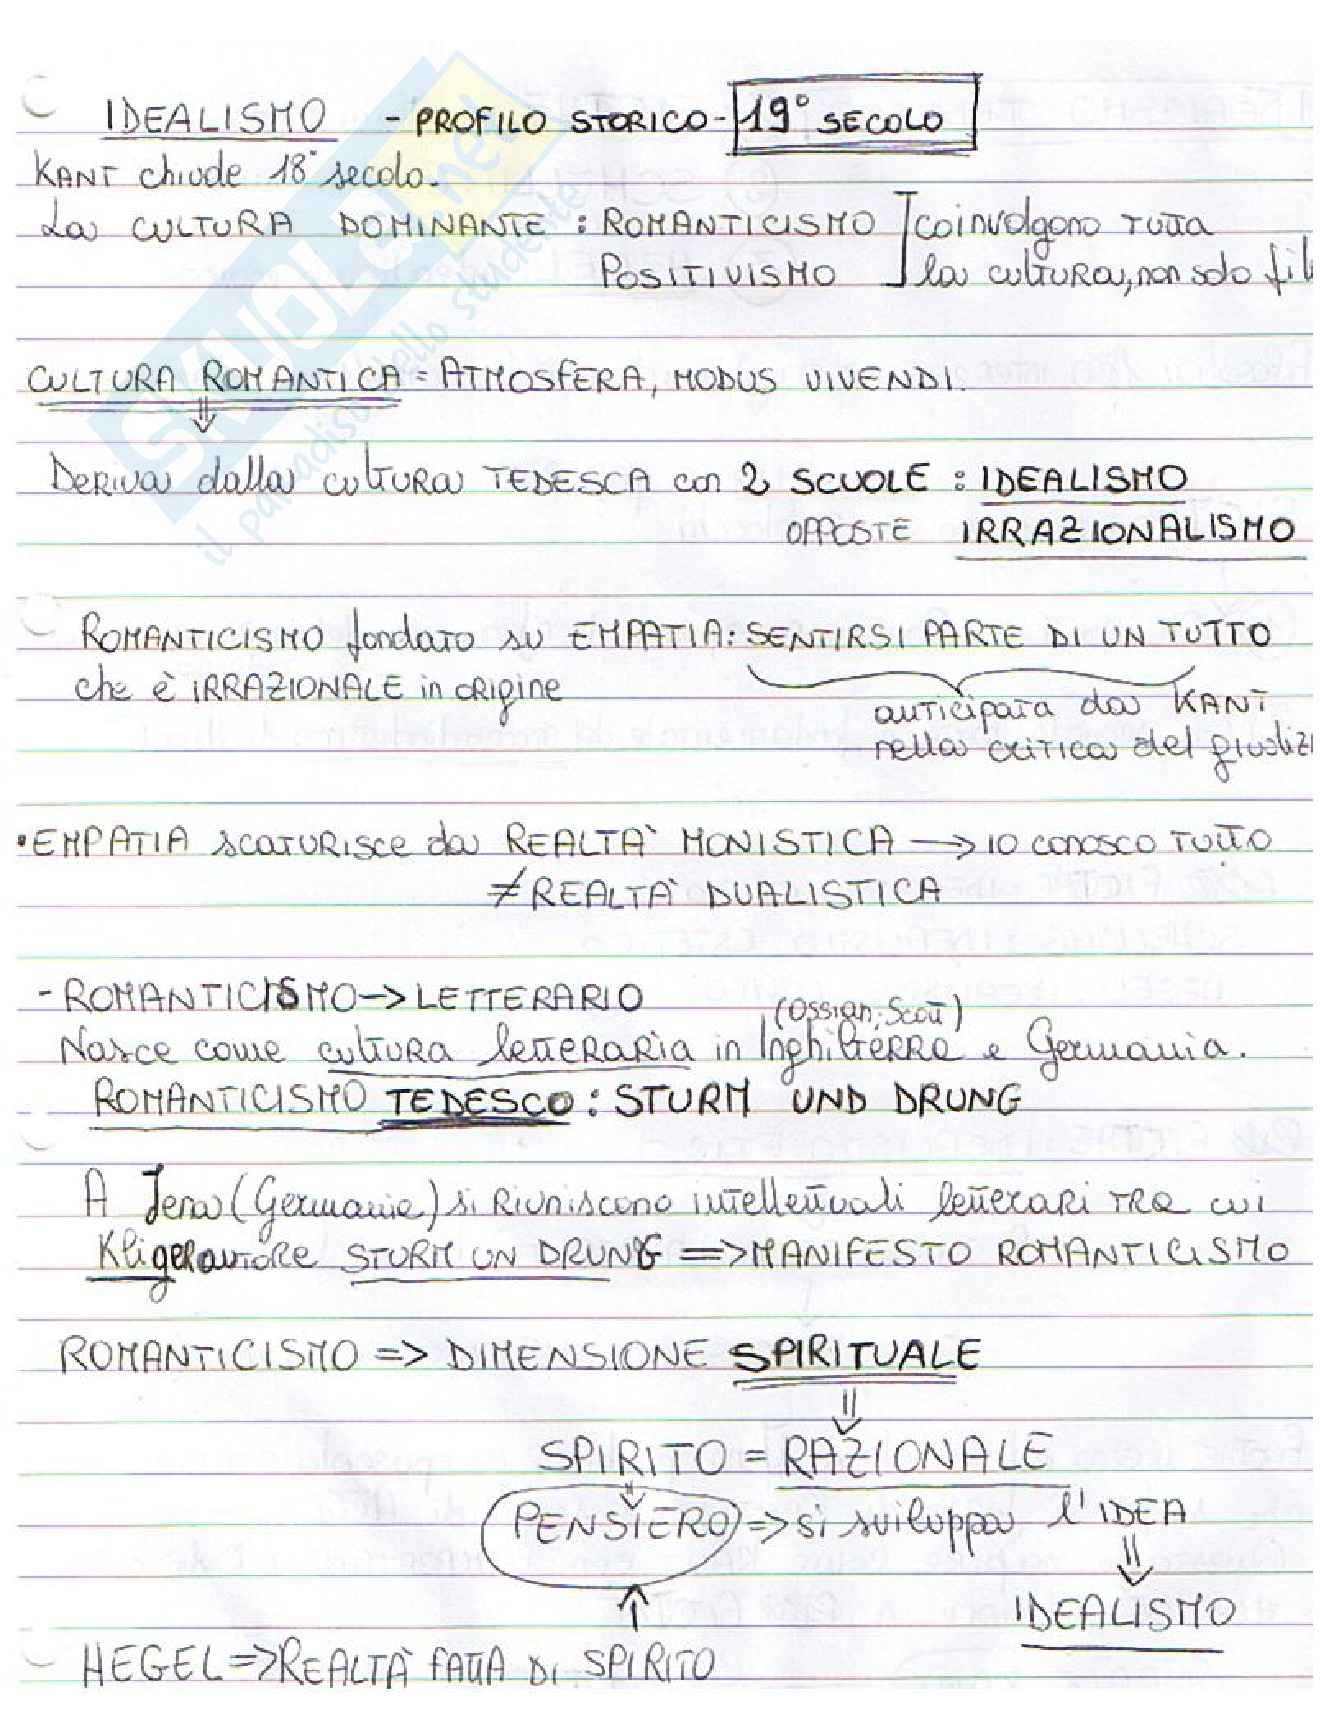 IDEALISMO - PROFILO STORICO - 19° SECOLO
KANT chiude 18° secolo.
La CULTURA DOMINANTE : ROMANTICISMO coinvolgono TUTTA
POSITIVISMO la cultura, non solo fil
CULTURA ROMANTICA = ATMOSFERA, MODUS VIVENDI.
⇓
Deriva dalla cultura TEDESCA con 2 SCUOLE : IDEALISMO
OPPOSTE IRRAZIONALISMO
ROMANTICISMO fondato su EMPATIA: SENTIRSI PARTE DI UN TUTTO
che è IRRAZIONALE in origine
anticipata da KANT
nella critica del giudizi
• EMPATIA scaturisce da REALTÀ MONISTICA → IO conosco TUTTO
≠ REALTÀ DUALISTICA
- ROMANTICISMO → LETTERARIO
(Ossian, Scott)
Nasce come cultura letteraria in Inghilterra e Germania.
ROMANTICISMO TEDESCO : STURM UND DRUNG
A Jena (Germania) si riuniscono intellettuali letterari tra cui
Kligerautore STURM UN DRUNG => MANIFESTO ROMANTICISMO
ROMANTICISMO => DIMENSIONE SPIRITUALE
⇓
SPIRITO = RAZIONALE
PENSIERO => si sviluppa l'IDEA
⇓
↑ IDEALISMO
HEGEL => REALTÀ FATTA DI SPIRITO
SKUOLA.net
il paradiso dello studente